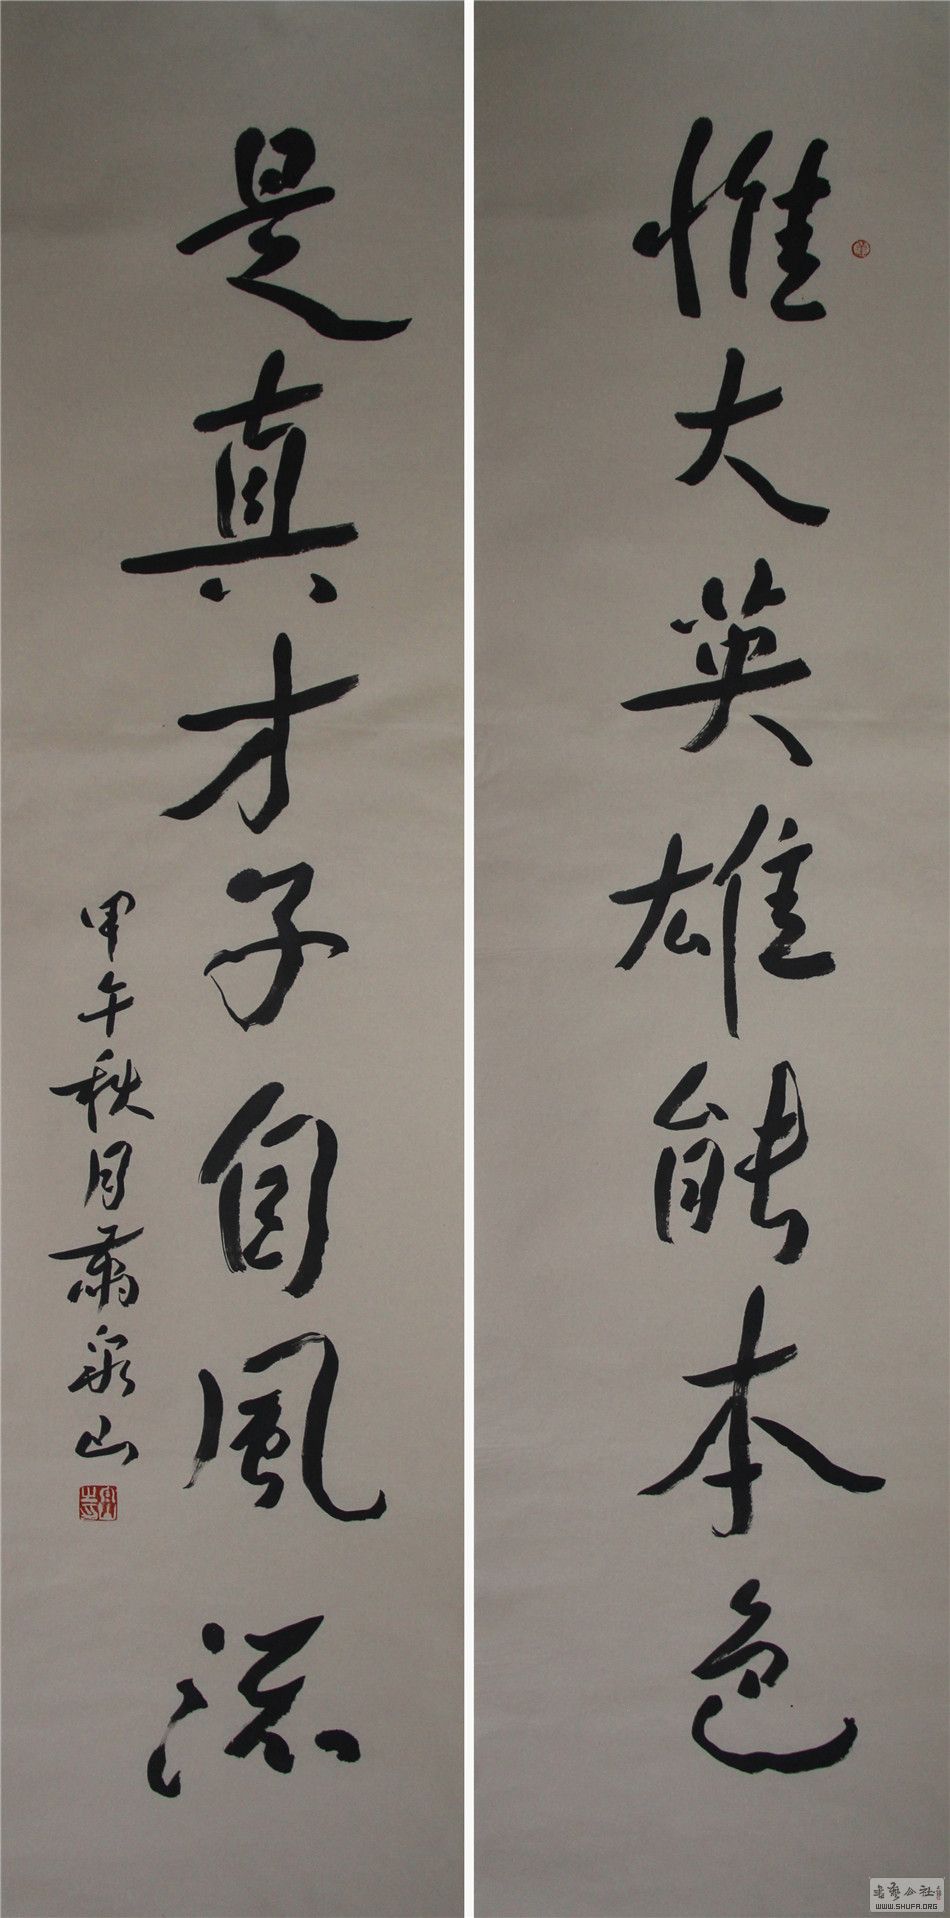 惟大英雄能本色
是真才子自風流
甲午秋月蕭泉山
書藝公社
WWW.SHUFA.ORG